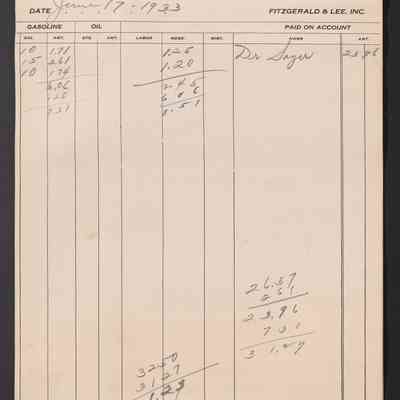 DATE June 17 - 1933 FITZGERALD & LEE, INC.
GASOLINE OIL PAID ON ACCOUNT
GAL. AMT. QTS. AMT. LABOR MDSE. MISC. NAME AMT.
10 1.71 1.25 Dr Sager 23.96
15 2.61 1.20
10 1.74 2.45
6.06 6.06
8.51
26.57
2 61
23.96
7 31
31.27
32 50
31 27
1.23